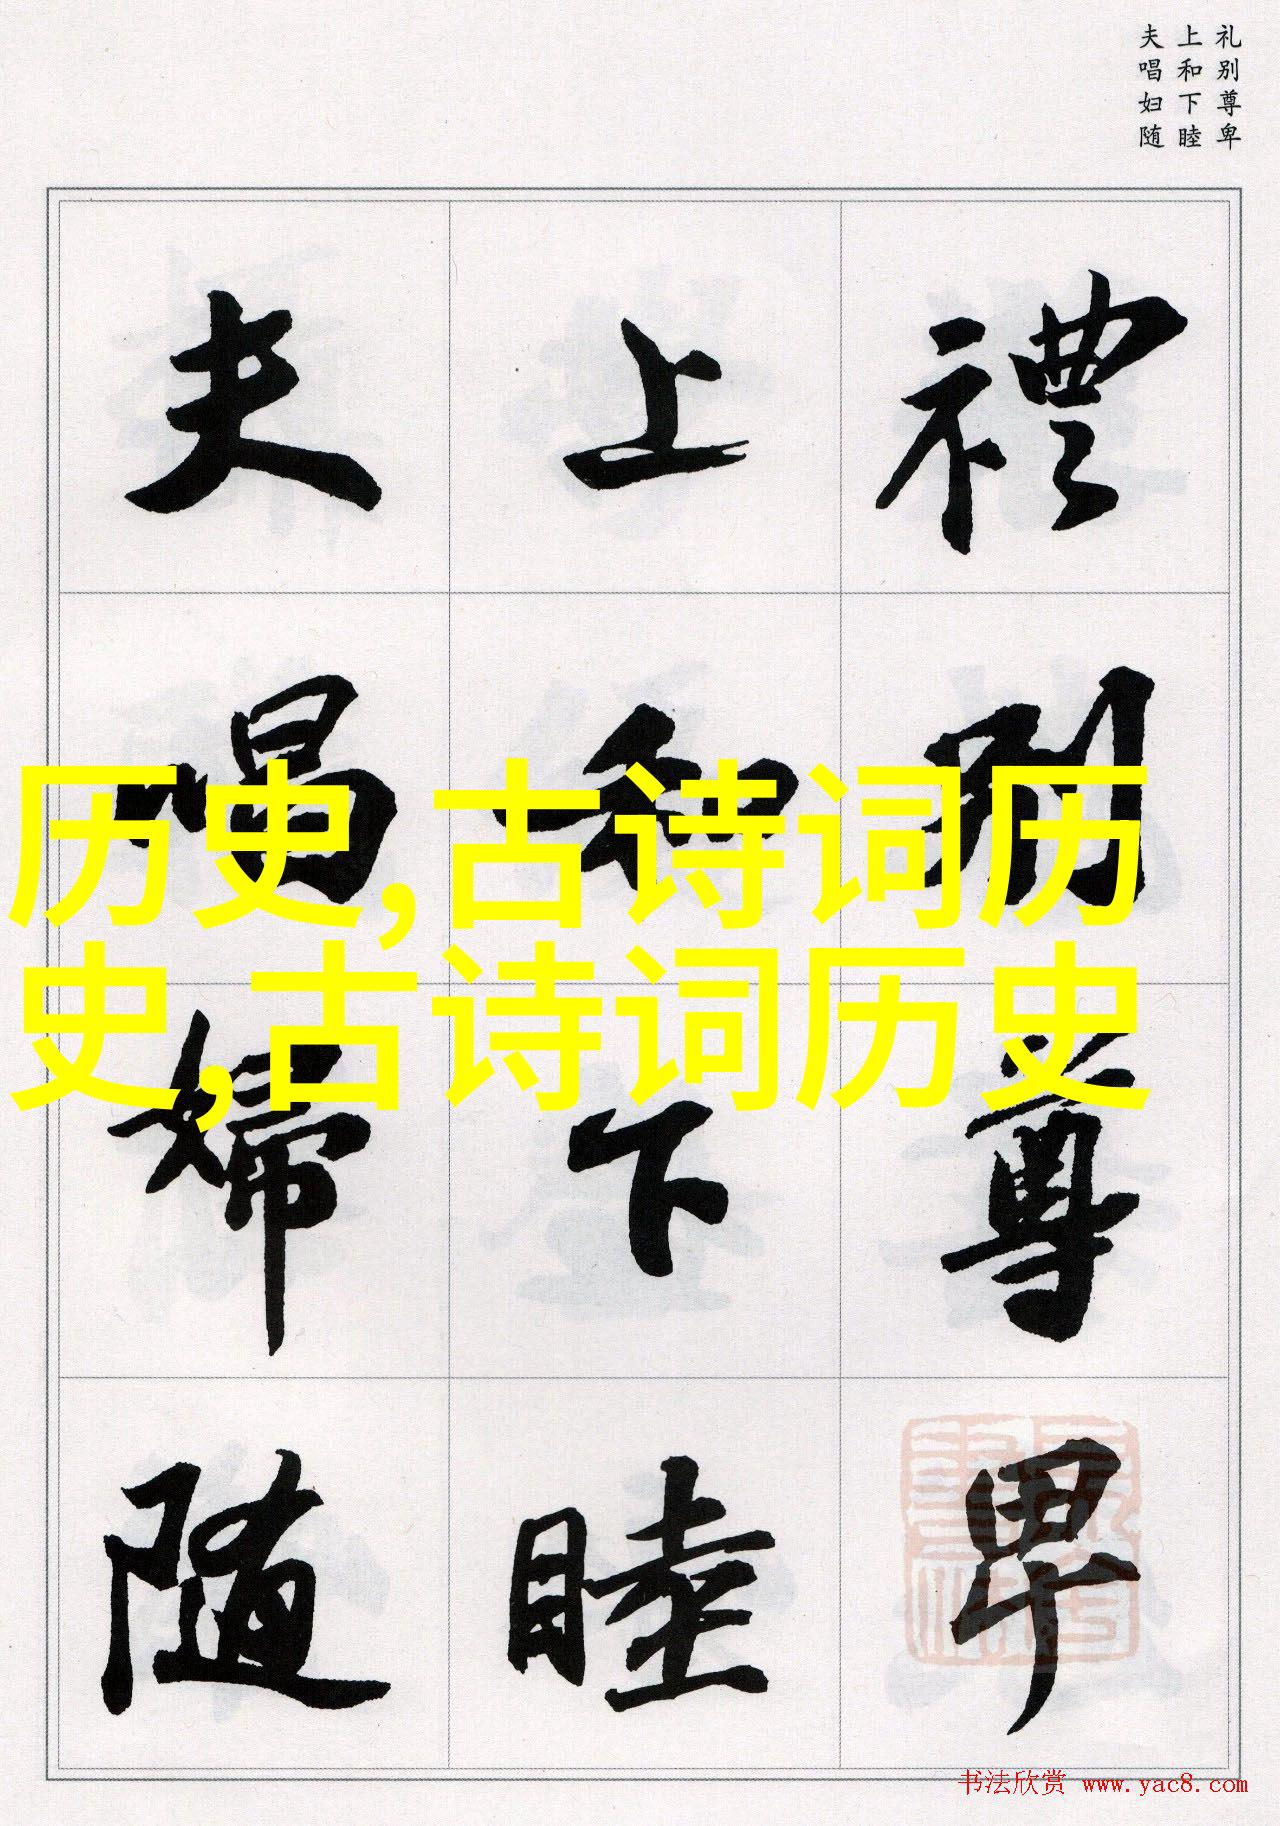 礼别尊卑
上和下睦
夫唱妇随
禮别尊卑
上和下睦
夫唱婦随
历史,古诗词历
史,古诗词历史
书法欣赏 www.yac8.com